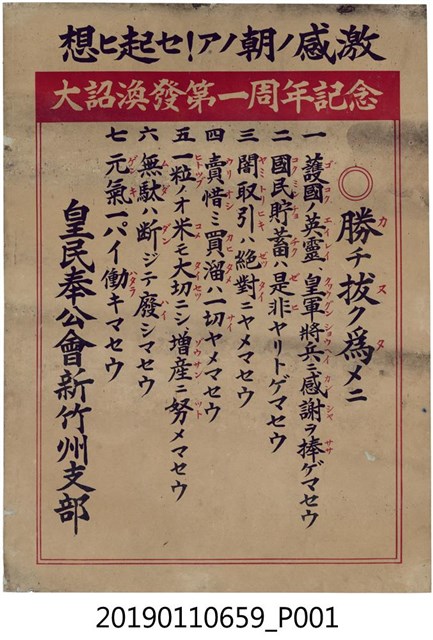 想ヒ起セ！アノ朝ノ感激
大詔渙發第一周年記念
◎勝チ拔ク爲メニ
一 護國ノ英靈 皇軍將兵ニ感謝ヲ捧ゲマセウ
二 國民貯蓄ハ是非ヤリトゲマセウ
三 闇取引ハ絕對ニヤメマセウ
四 賣惜ミ買溜ハ一切ヤメマセウ
五 一粒ノオ米モ大切ニシ增産ニ努メマセウ
六 無駄ハ断ジテ廢シマセウ
七 元氣一パイ働キマセウ
皇民奉公會新竹州支部
20190110659_P001